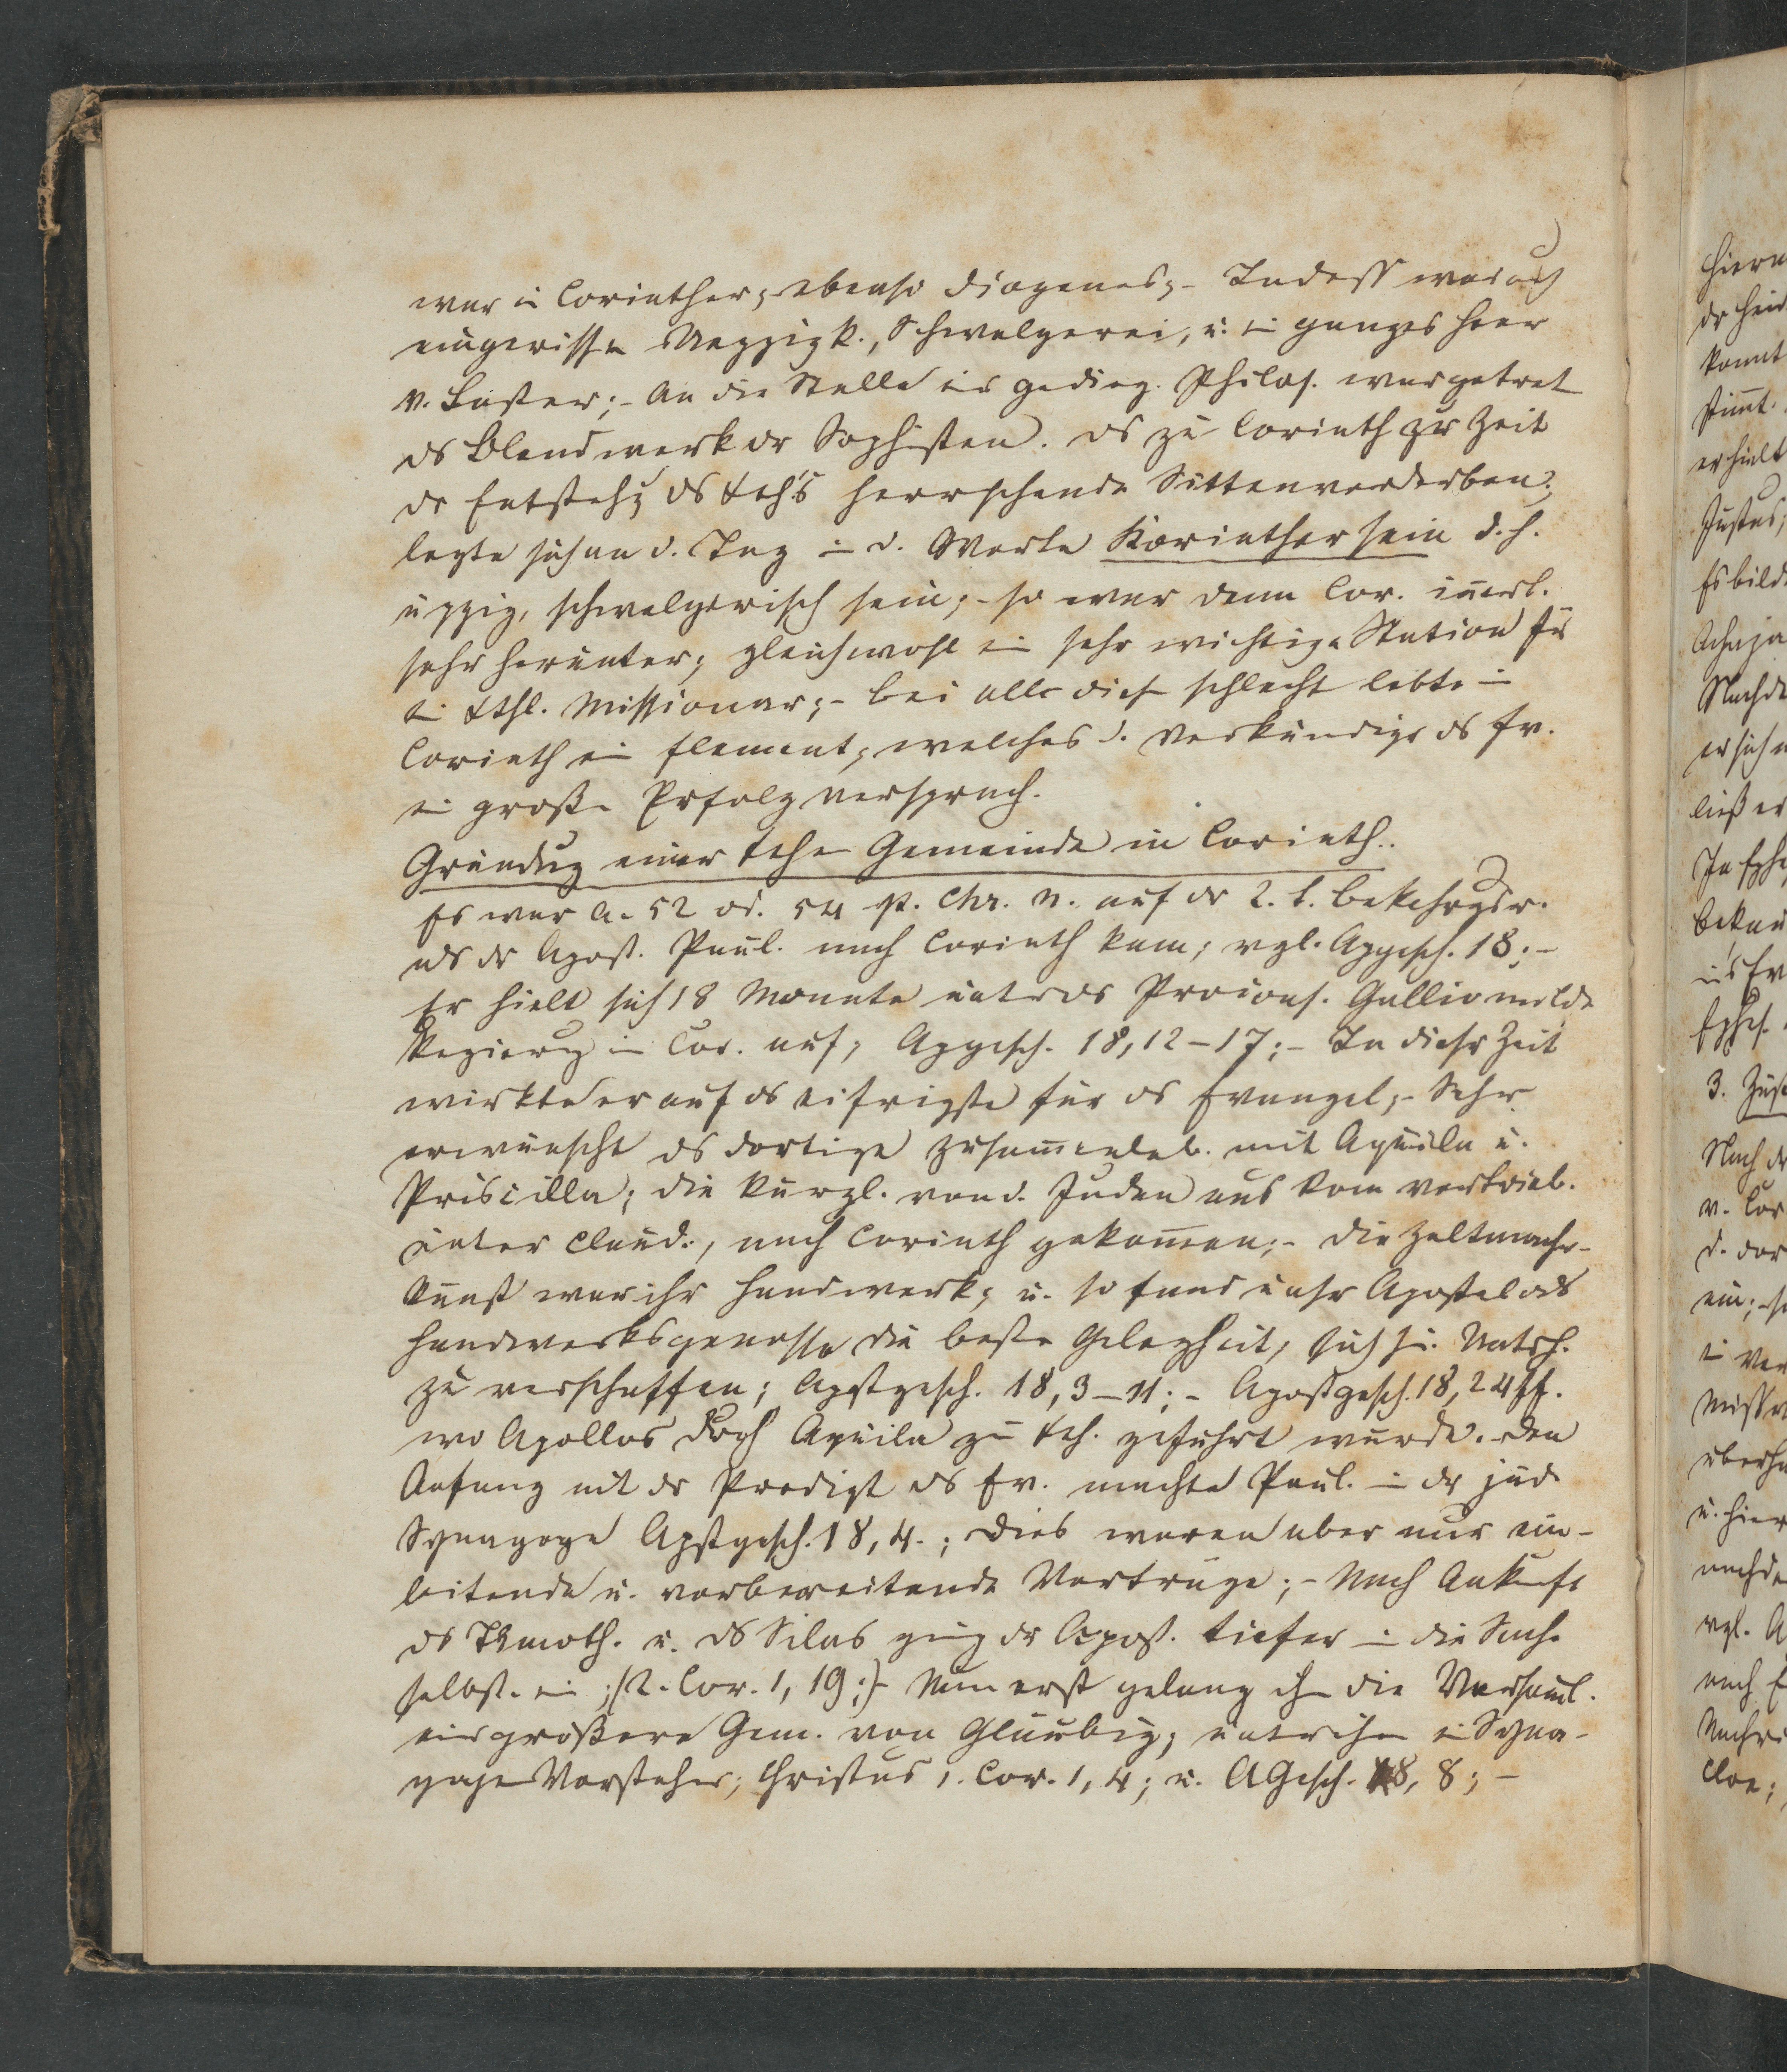 war ein Corinther, ebenso Diogenes; - Indeß war auch
eingerissen Ueppigk., Schwelgerei, u. ein ganzes Heer
v. Laster; - An die Stelle der gedieg. Philos. war getret
ds Blendwerk der Sophisten. Ds zu Corinth zur Zeit
dr Entstehg ds Xths herrschende Sittenverderben,
legte sich an d. Tag in d. Worte Korinther sein d. h.
üppig, schwelgerisch sein; - so war denn Cor. innerl.
sehr herunter, gleichwohl ein sehr wichtige Station für
ein Xthl. Missionar; - bei alle diese schlecht lebte in
Corinth ein Element, welches d. Verkündigr ds Ev.
ein große Erfolg versprach.
Gründug einer Xche Gemeinde in Corinth.
Es war a. 52 od. 54 p. Chr. n. auf dr 2. t. Bekehrgsr.
als dr Apost. Paul. nach Corinth kam; vgl. Apgesch. 18; -
Er hielt sich 18 Monate unter ds Procons. Gallio milde
Regierug in Cor. auf; Apgesch. 18, 12-17; - In dieser Zeit
wirkte er auf ds eifrigste für ds Evangel; - Sehr
erwünscht ds dortige Zusamenleb. mit Aquila u.
Priscilla; die kurzl. von d. Juden aus Rom vertrieb.
unter Claud., nach Corinth gekomen; - die Zeltmacher-
kunst war ihr Handwerk, u. so fand unser Apostel als
Handwerksgenosse die beste Gelegheit, sich sei. Unterh.
zu verschaffen; Apstgesch. 18, 3-11; - Apostgesch. 18, 24 ff.
wo Apollos durch Aquila zu Xth. geführt wurde. - Den
Anfang mit dr Predigt ds Ev. machte Paul. in dr jüd
Synagoge Apstgesch. 18, 4.; dies waren aber nur ein-
leitende u. vorbereitende Vorträge; - Nach Ankunft
ds Timoth. u. ds Silas ging dr Apost. tiefer in die Sache
selbst. ein; (2. Cor. 1, 19;) - Nun erst gelang ihm die Versaml.
einr größere Gem. von Gläubig; unter ihn ein Syna-
gogen Vorsteher; Christus 1. Cor. 1, 4; u. AGesch. 18, 8; -